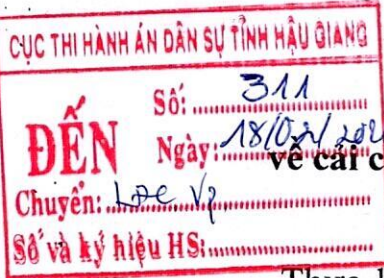 CỤC THI HÀNH ÁN DÂN SỰ TỈNH HẬU GIANG
ĐẾN
Số: 311
Ngày: 18/02/202
về cải c
Chuyển:
Số và ký hiệu HS: